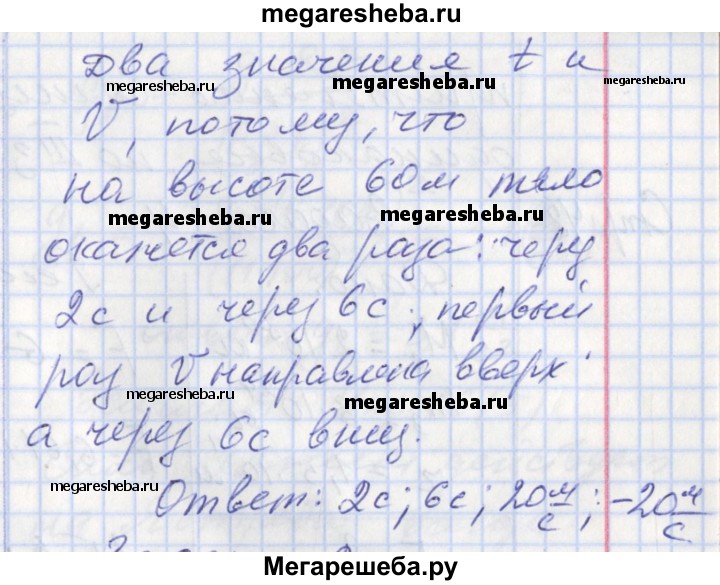 megaresheba.ru
Два значения t и
megaresheba.ru megaresheba.ru megaresheba.ru
V, потому, что
на высоте 60м тело
megaresheba.ru megaresheba.ru
окажется два раза: через
2с и через 6с; первый
раз V направлена вверх
megaresheba.ru megaresheba.ru
а через 6с вниз.
megaresheba.ru megaresheba.ru
Ответ: 2с; 6с; 20 м/с; -20 м/с
Мегарешеба.ру